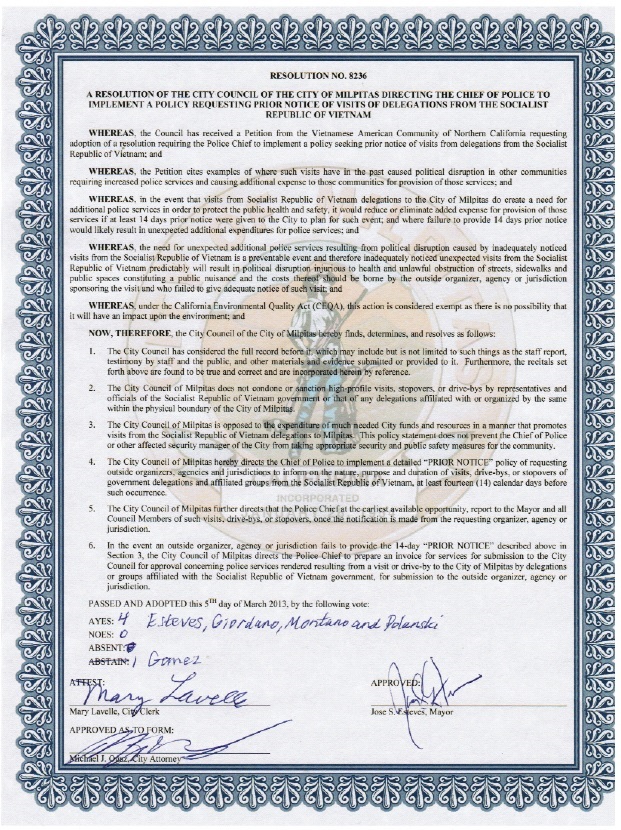 RESOLUTION NO. 8236
A RESOLUTION OF THE CITY COUNCIL OF THE CITY OF MILPITAS DIRECTING THE CHIEF OF POLICE TO
IMPLEMENT A POLICY REQUESTING PRIOR NOTICE OF VISITS OF DELEGATIONS FROM THE SOCIALIST
REPUBLIC OF VIETNAM
WHEREAS, the Council has received a Petition from the Vietnamese American Community of Northern California requesting
adoption of a resolution requiring the Police Chief to implement a policy seeking prior notice of visits from delegations from the Socialist
Republic of Vietnam; and
WHEREAS, the Petition cites examples of where such visits have in the past caused political disruption in other communities
requiring increased police services and causing additional expense to those communities for provision of those services; and
WHEREAS, in the event that visits from Socialist Republic of Vietnam delegations to the City of Milpitas do create a need for
additional police services in order to protect the public health and safety, it would reduce or eliminate added expense for provision of those
services if at least 14 days prior notice were given to the City to plan for such event; and where failure to provide 14 days prior notice
would likely result in unexpected additional expenditures for police services; and
WHEREAS, the need for unexpected additional police services resulting from political disruption caused by inadequately noticed
visits from the Socialist Republic of Vietnam is a preventable event and therefore inadequately noticed unexpected visits from the Socialist
Republic of Vietnam predictably will result in political disruption injurious to health and unlawful obstruction of streets, sidewalks and
public spaces constituting a public nuisance and the costs thereof should be borne by the outside organizer, agency or jurisdiction
sponsoring the visit and who failed to give adequate notice of such visit; and
WHEREAS, under the California Environmental Quality Act (CEQA), this action is considered exempt as there is no possibility that
it will have an impact upon the environment; and
NOW, THEREFORE, the City Council of the City of Milpitas hereby finds, determines, and resolves as follows:
1. The City Council has considered the full record before it, which may include but is not limited to such things as the staff report,
testimony by staff and the public, and other materials and evidence submitted or provided to it. Furthermore, the recitals set
forth above are found to be true and correct and are incorporated herein by reference.
2. The City Council of Milpitas does not condone or sanction high-profile visits, stopovers, or drive-bys by representatives and
officials of the Socialist Republic of Vietnam government or that of any delegations affiliated with or organized by the same
within the physical boundary of the City of Milpitas.
3. The City Council of Milpitas is opposed to the expenditure of much needed City funds and resources in a manner that promotes
visits from the Socialist Republic of Vietnam delegations to Milpitas. This policy statement does not prevent the Chief of Police
or other affected security manager of the City from taking appropriate security and public safety measures for the community.
4. The City Council of Milpitas hereby directs the Chief of Police to implement a detailed “PRIOR NOTICE” policy of requesting
outside organizers, agencies and jurisdictions to inform on the nature, purpose and duration of visits, drive-bys, or stopovers of
government delegations and affiliated groups from the Socialist Republic of Vietnam, at least fourteen (14) calendar days before
such occurrence.
INCORPORATED
5. The City Council of Milpitas further directs that the Police Chief at the earliest available opportunity, report to the Mayor and all
Council Members of such visits, drive-bys, or stopovers, once the notification is made from the requesting organizer, agency or
jurisdiction.
6. In the event an outside organizer, agency or jurisdiction fails to provide the 14-day “PRIOR NOTICE” described above in
Section 3, the City Council of Milpitas directs the Police Chief to prepare an invoice for services for submission to the City
Council for approval concerning police services rendered resulting from a visit or drive-by to the City of Milpitas by delegations
or groups affiliated with the Socialist Republic of Vietnam government, for submission to the outside organizer, agency or
jurisdiction.
PASSED AND ADOPTED this 5TH day of March 2013, by the following vote:
AYES: 4 Esteves, Giordano, Montano and Polanski
NOES: 0
ABSENT:
ABSTAIN: 1 Gomez
ATTEST: APPROVED:
Mary Lavelle
Mary Lavelle, City Clerk Jose S. Esteves, Mayor
APPROVED AS TO FORM:
Michael J. Ogaz, City Attorney